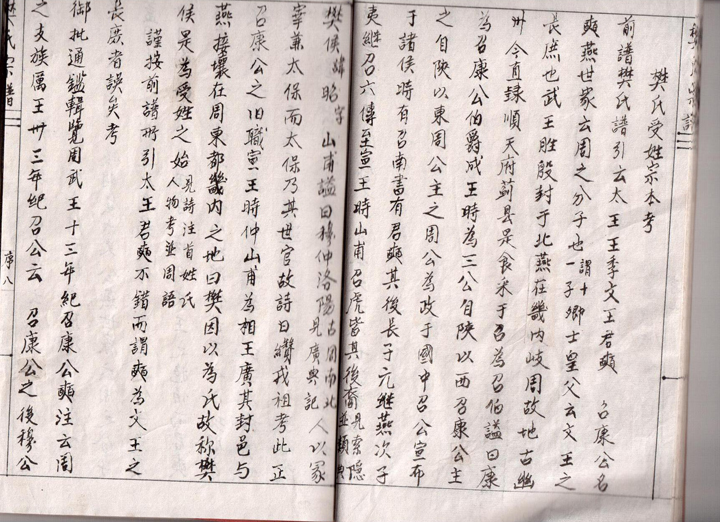 樊氏受姓宗本考
前譜樊氏譜引云太王王季文王君奭 召康公名
奭燕世家云周之分子也謂十卿士皇父云文王之
一子
長庶也武王勝殷封于北燕在畿內岐周故地古幽
州今直隸順天府薊县是食采于召為召伯謚曰康
為召康公伯爵成王時為三公自陝以西召康公主
之自陝以東周公主之周公為政于國中召公宣布
于諸侯時有召南書有君奭其後長子元继燕次子
夷継召六傳至宣王時山甫召虎皆其後裔見索隐
並類典
樊侯諱昭字 山甫謚曰穆仲洛陽古周南北人以冢
見廣輿記
宰兼太保而太保乃其世官故詩曰纘戎祖考此正
召康公之旧職宣王時仲山甫為相王廣其封邑与
燕接壤在周東都畿內之地曰樊因以為氏故称樊
侯是為受姓之始見詩注百姓氏
人物考並周語
謹按前譜所引太王君奭不錯而謂奭為文王之
長庶者誤矣考
御批通鑑輯覽周武王十三年紀召康公奭注云周
之支族厲王卅三年紀召公云 召康公之後穆公
樊氏宗譜
序八